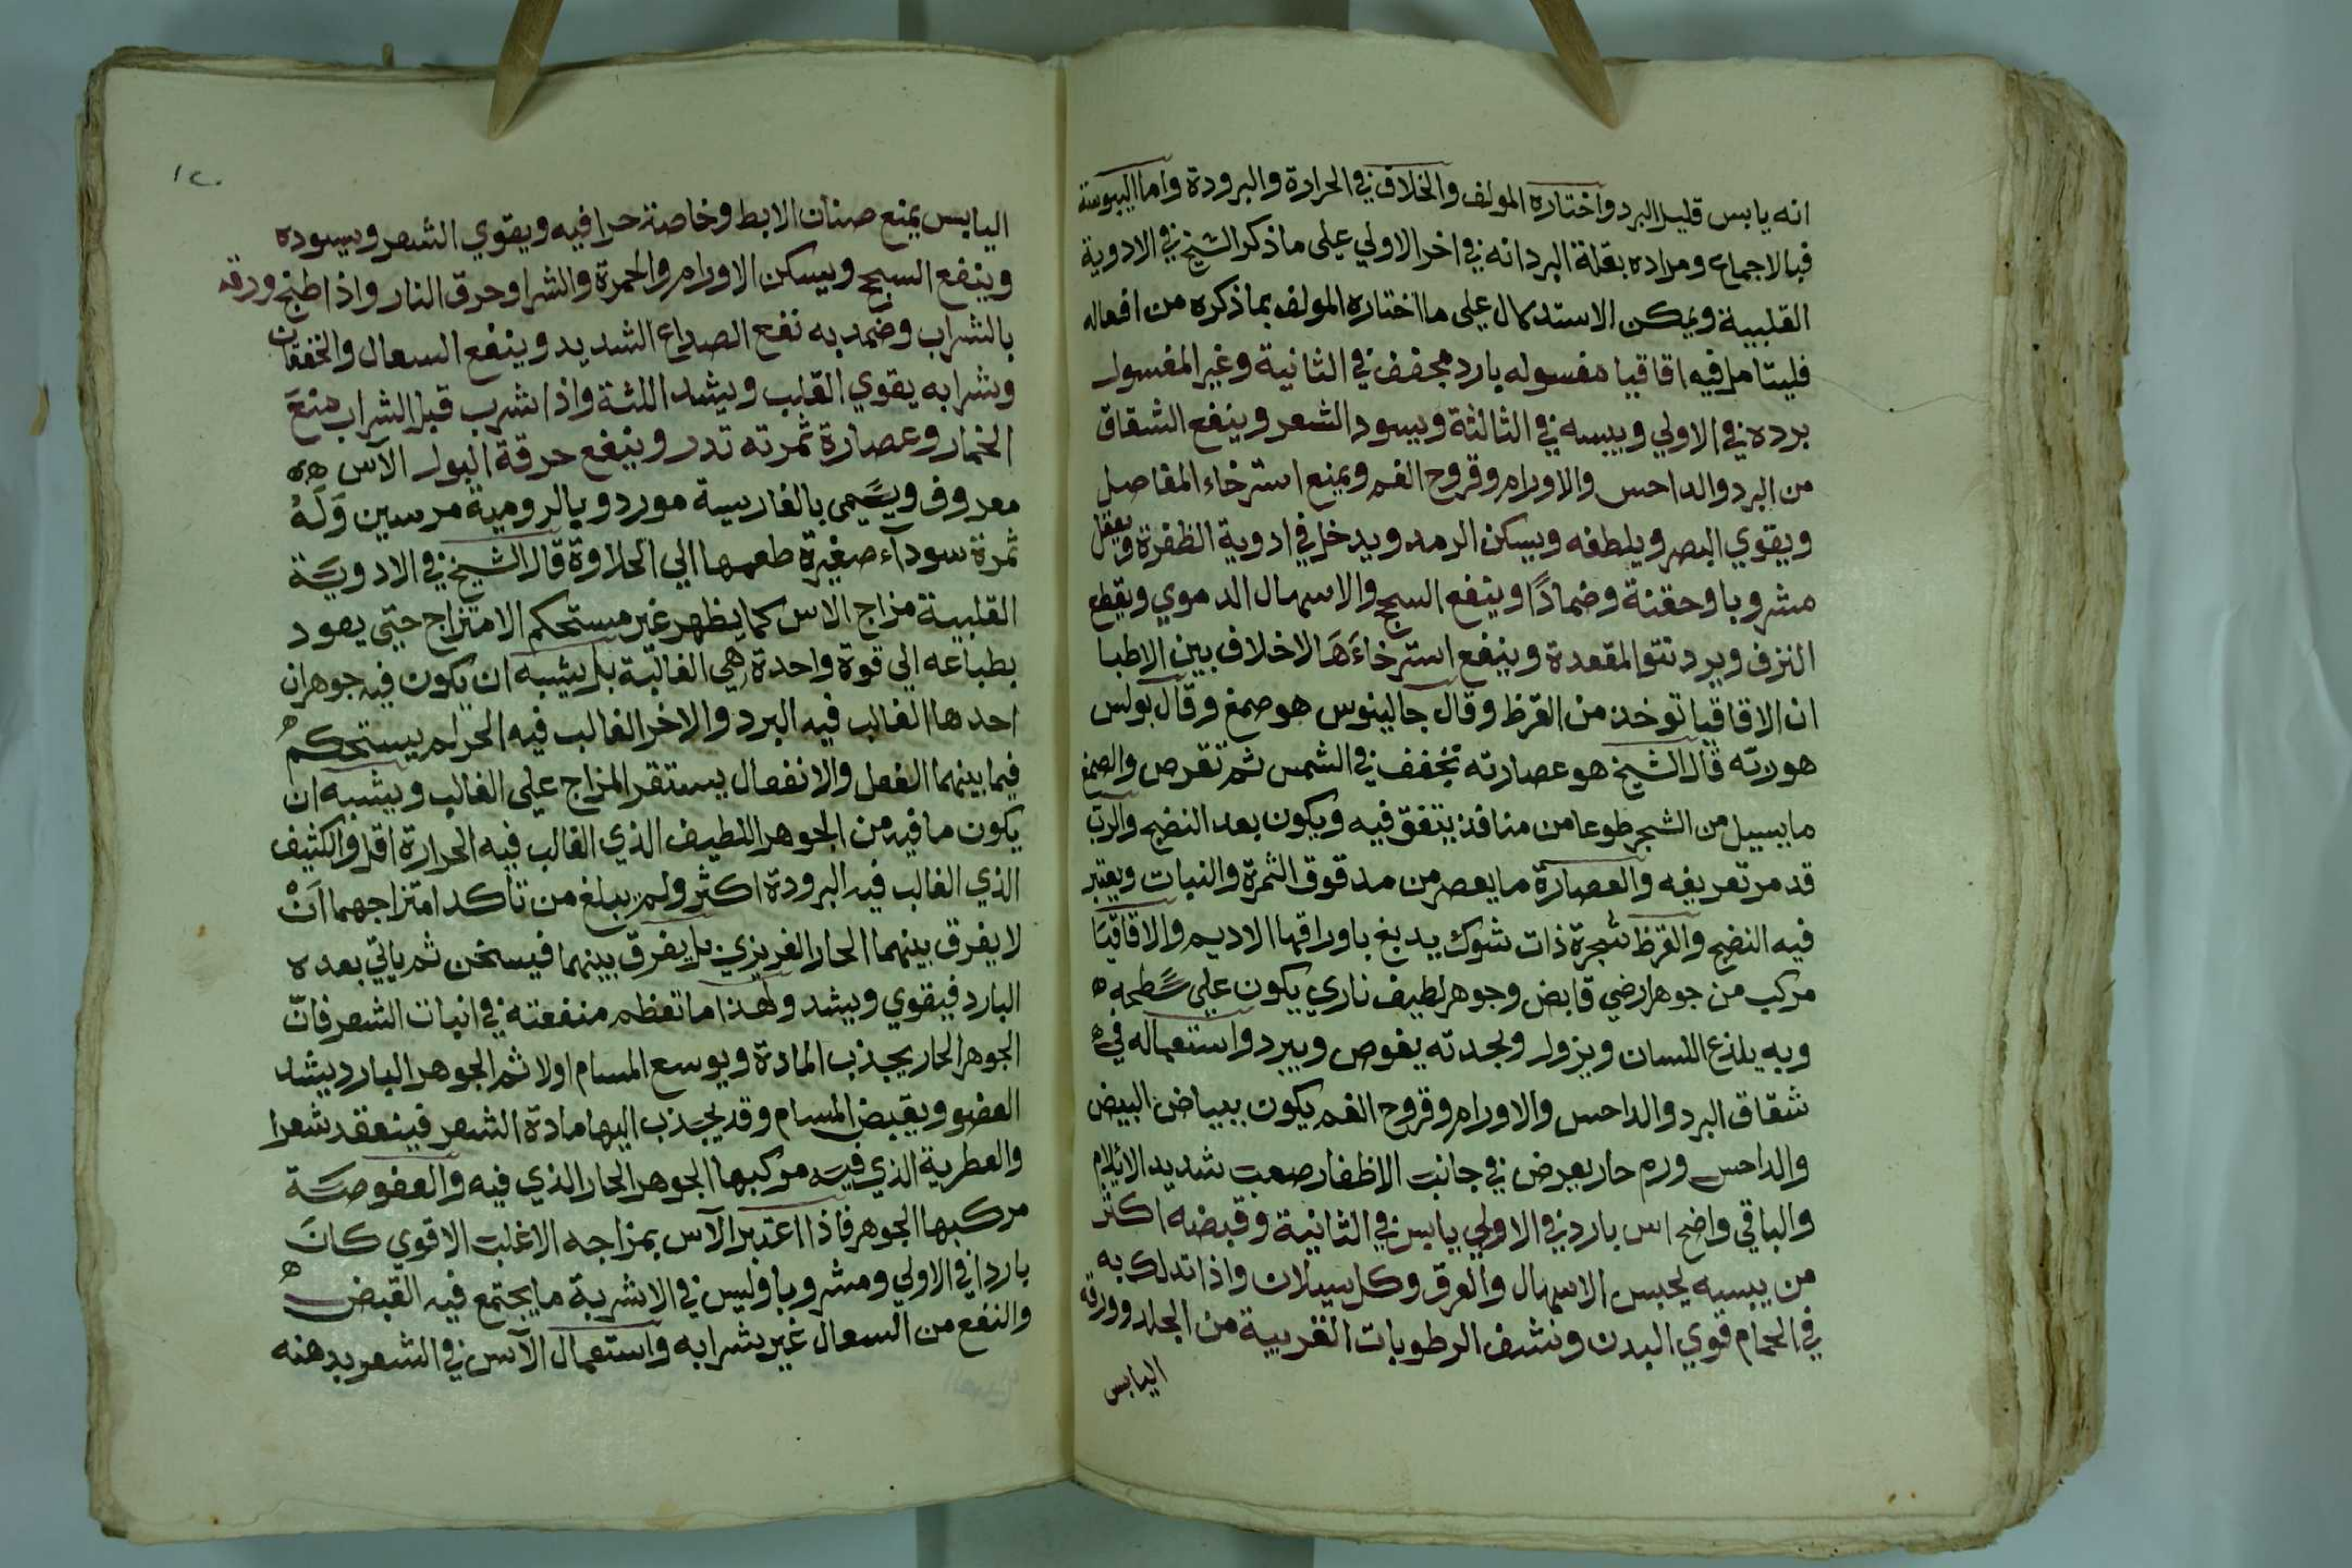 انه يابس قليل البرد واختاره المولف والخلاف في الحرارة والبرودة واما اليبوسة
فبالاجماع ومراده بقلة البرد انه في اخر الاولي علي ما ذكر الشيخ في الادوية
القلبية ويمكن الاستدلال علي ما اختاره المولف بما ذكره من افعاله
فليتامل فيه اقاقيا مغسوله بارد مجفف في الثانية وغير المغسول
برده في الاولي ويبسه في الثالثة ويسود الشعر وينفع الشقاق
من البرد والداحس والاورام وقروح الفم ويمنع استرخاء المفاصل
ويقوي البصر ويلطفه ويسكن الرمد ويدخل في ادوية الظفرة ويعقل
مشروبا وحقنة وضمادًا وينفع السحج والاسهال الدموي ويقطع
النزف ويرد نتو المقعدة وينفع استرخاءَهَا لاخلاف بين الاطبا
ان الاقاقيا توخذ من القرظ وقال جالينوس هو صمغ وقال بولس
هو ربّه قال الشيخ هو عصارته تجفف في الشمس ثم تقرص والصمغ
ما يسيل من الشجر طوعا من منافذ يتفق فيه ويكون بعد النضج والرب
قد مر تعريفه والعصارة ما يعصر من مدقوق الثمرة والنبات ويعتبر
فيه النضج والقرظ شجرة ذات شوك يدبغ باوراقها الاديم والاقاقيَا
مركب من جوهر ارضي قابض وجوهر لطيف ناري يكون علي سطحه
وبه يلذع اللسان ويزول وبحدته يغوص ويبرد واستعماله في
شقاق البرد والداحس والاورام وقروح الفم يكون ببياض البيض
والداحس ورم حار يعرض في جانب الاظفار صعب شديد الايلام
والباقي واضح اس بارد في الاولي يابس في الثانية وقبضه اكثر
من يبسه يحبس الاسهال والعرق وكل سيلان واذا تدلك به
في الحمام قوي البدن ونشف الرطوبات الغريبة من الجلد وورقه
اليابس
١٢٠
اليابس يمنع صنان الابط وخاصة حرافيه ويقوي الشعر ويسوده
وينفع السحج ويسكن الاورام والحمرة والشرا وحرق النار واذا طبخ ورقه
بالشراب وضمد به نفع الصداع الشديد وينفع السعال والخفقان
وشرابه يقوي القلب ويشد اللثة واذا شرب قبل الشراب منعَ
الخمار وعصارة ثمرته تدر وينفع حرقة البول الآس
معروف ويسَمي بالفارسية مورد وبالرومية مرسين وَلَهُ
ثمرة سودآء صغيرة طعمها الي الحلاوة قال الشيخ في الادويَة
القلبية مزاج الاس كما يظهر غير مستحكم الامتزاج حتي يعود
بطباعه الي قوة واحدة هي الغالبة بل يشبه ان يكون فيه جوهران
احدها الغالب فيه البرد والاخر الغالب فيه الحر لم يستحكم
فيما بينهما الفعل والانفعال يستقر المزاج علي الغالب ويشبه ان
يكون ما فيه من الجوهر اللطيف الذي الغالب فيه الحرارة اقل والكثيف
الذي الغالب فيه البرودة اكثر ولم يبلغ من تاكد امتزاجهما اَنْ
لا يفرق بينهما الحار الغريزي بل يفرق بينهما فيسخن ثم ياتي بعده
البارد فيقوي ويشد ولهذا ما تعظم منفعته في انبات الشعر فانّ
الجوهر الحار يجذب المادة ويوسع المسام اولا ثم الجوهر البارد يشد
العضو ويقبض المسام وقد يجذب اليها مادة الشعر فينعقد شعرا
والعطرية الذي فيه مركبها الجوهر الحار الذي فيه والعفوصَة
مركبها الجوهر فاذا اعتبر الآس بمزاجه الاغلب الاقوي كانَ
باردا في الاولي ومشروبا وليس في الاشربة ما يجتمع فيه القبض
والنفع من السعال غير شرابه واستعمال الآس في الشعر بدهنه